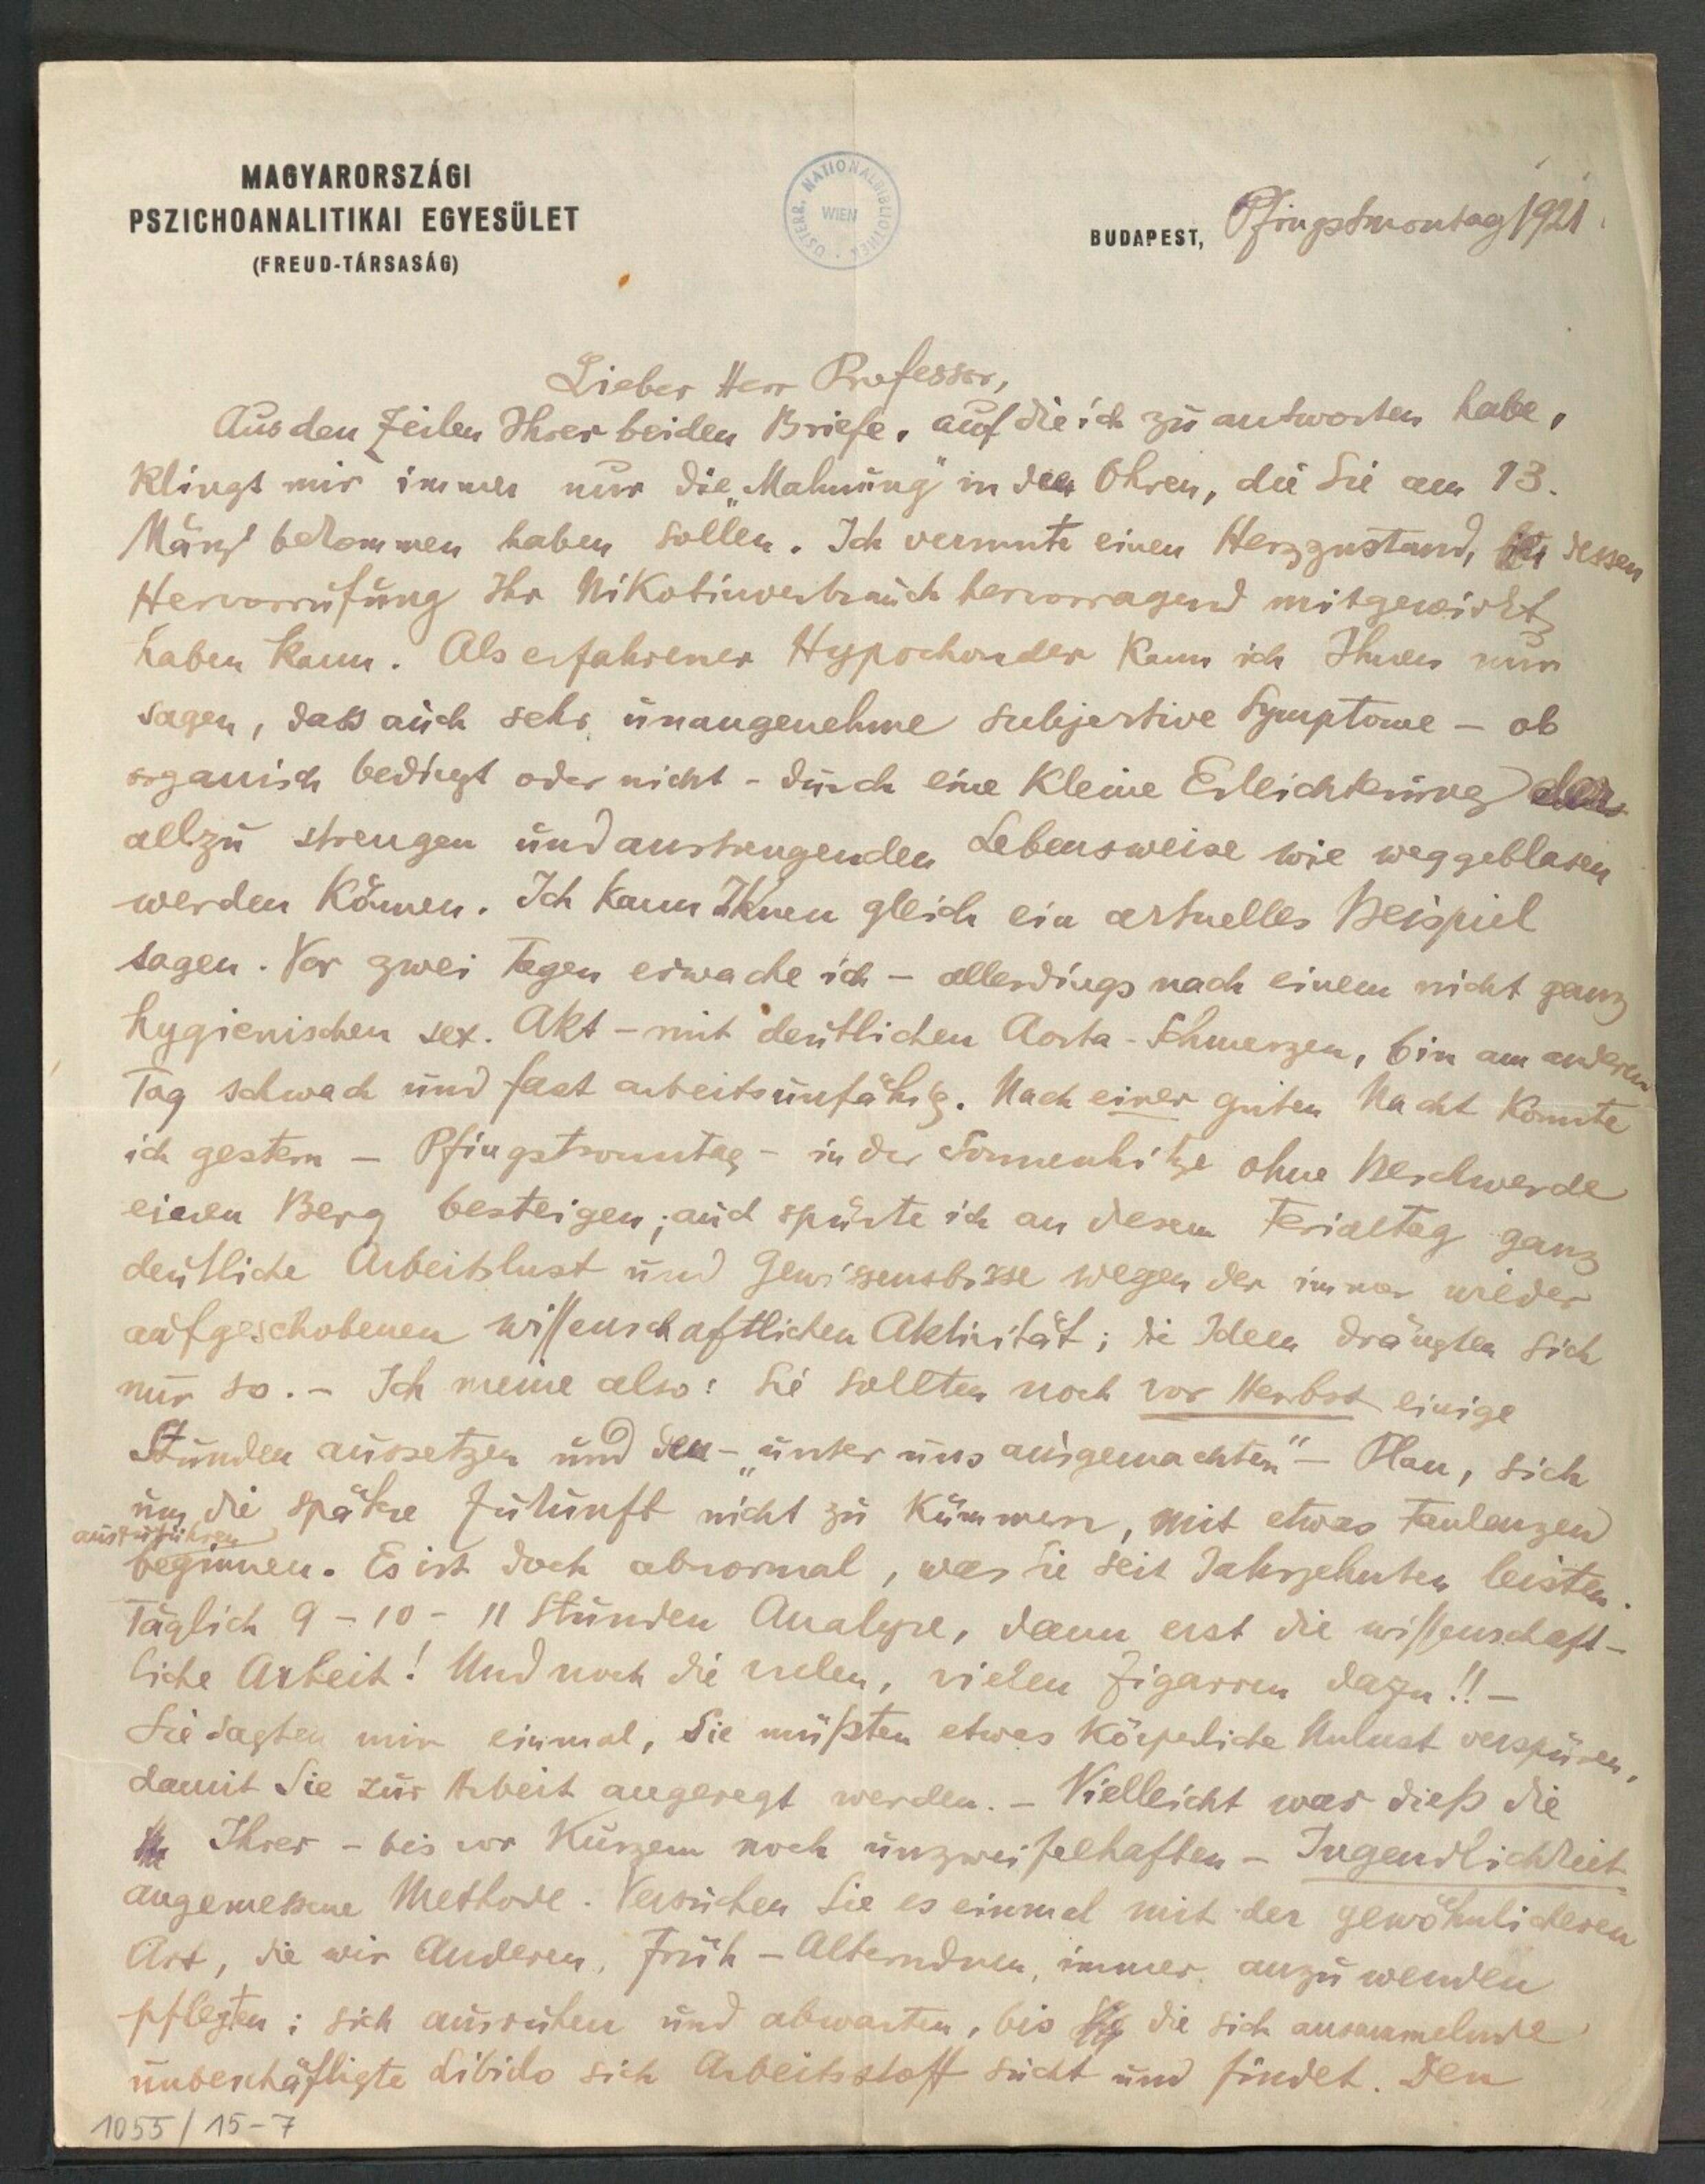 MAGYARORSZÁGI
PSZICHOANALITIKAI EGYESÜLET
(FREUD-TÁRSASÁG)
ÖSTERR. NATIONALBIBLIOTHEK
WIEN
BUDAPEST, Pfingstmontag 1921
Lieber Herr Professor,
Aus den Zeilen Ihrer beiden Briefe, auf die ich zu antworten habe,
klingt mir immer nur die „Mahnung" in den Ohren, die Sie am 13.
März bekommen haben sollen. Ich vermute einen Herzzustand, dessen
Hervorrufung Ihr Nikotinverbrauch hervorragend mitgewirkt
haben kann. Als erfahrener Hypochonder kann ich Ihnen nur
sagen, dass auch sehr unangenehme subjective Symptome – ob
organisch bedingt oder nicht – durch eine kleine Erleichterung der
allzu strengen und anstrengenden Lebensweise wie weggeblasen
werden können. Ich kann Ihnen gleich ein actuelles Beispiel
sagen. Vor zwei Tagen erwache ich – allerdings nach einem nicht ganz
hygienischen sex. Akt – mit deutlichen Aorta-Schmerzen, bin am anderen
Tag schwach und fast arbeitsunfähig. Nach einer guten Nacht konnte
ich gestern – Pfingstsonntag – in der Sonnenhitze ohne Beschwerde
einen Berg besteigen; auch spürte ich an diesem Ferialtag ganz
deutliche Arbeitslust und Gewissensbisse wegen der immer wieder
aufgeschobenen wissenschaftlichen Aktivität; die Ideen drängten sich
nur so. – Ich meine also: Sie sollten noch vor Herbst einige
Stunden aussetzen und den – „unter uns ausgemachten" – Plan, sich
um die spätere Zukunft nicht zu kümmern, mit etwas Faulenzen
auszuführen
beginnen. Es ist doch abnormal, was Sie seit Jahrzehnten leisten.
Täglich 9 – 10 – 11 Stunden Analyse, dann erst die wissenschaft-
liche Arbeit! Und noch die vielen, vielen Zigarren dazu!! –
Sie sagten mir einmal, Sie müßten etwas körperliche Unlust verspüren,
damit Sie zur Arbeit angeregt werden. – Vielleicht war dieß die
Ihrer – bis vor Kurzem noch unzweifelhaften – Jugendlichkeit
angemessene Methode. Versuchen Sie es einmal mit der gewöhnlicheren
Art, die wir Anderen, Früh-Alternden, immer anzuwenden
pflegten: sich ausruhen und abwarten, bis die sich ansammelnde
unbeschäftigte Libido sich Arbeitsstoff sucht und findet. Den
1055/15-7